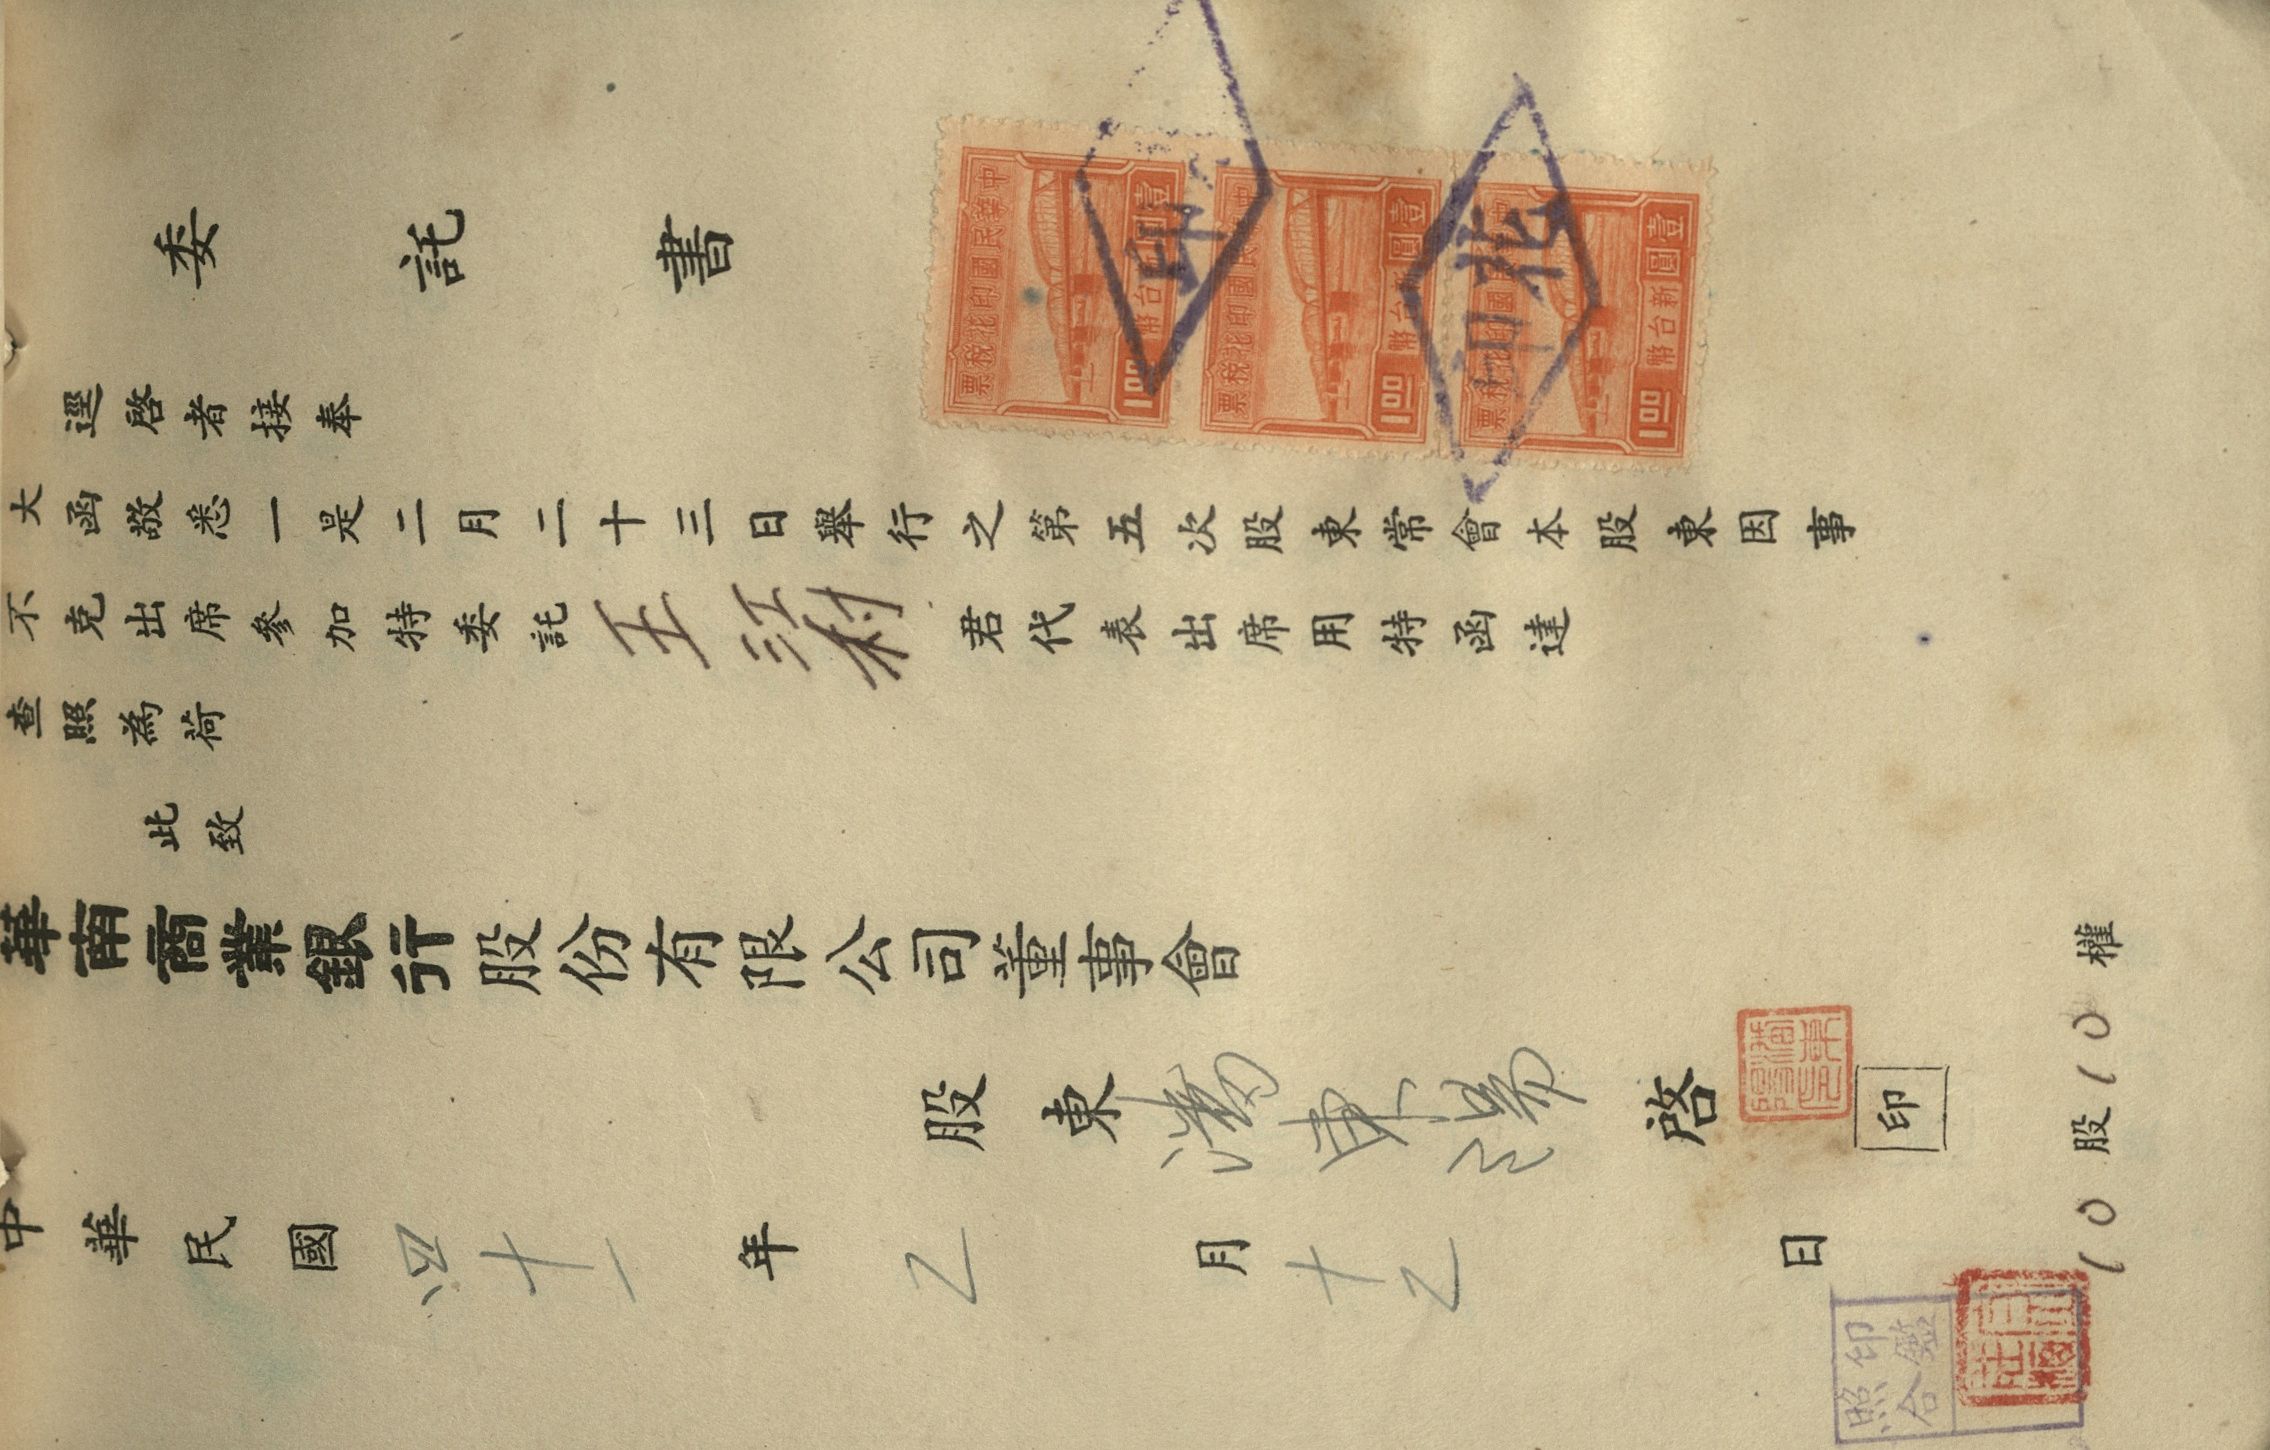 委託書
逕啓者接奉
大函敬悉一是二月二十三日舉行之第五次股東常會本股東因事
不克出席參加特委託王江村君代表出席用特函達
查照為荷
此致
華南商業銀行股份有限公司董事會
股東 東 啓
印
中華民國四十一年乙月十乙日
10股10權
中華民國印花稅票
壹圓 新台幣 1.00
國印花稅票
壹圓 台幣 1.00
國印花稅票
壹圓 新台幣 1.00
印
北
印鑑
照合